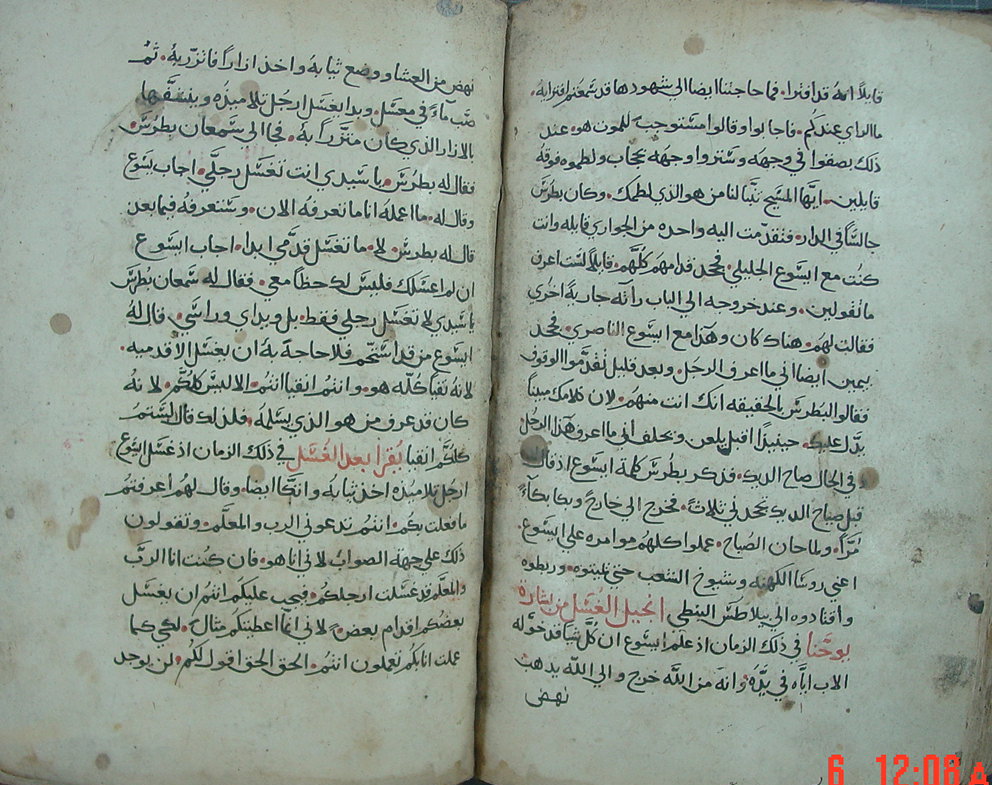 قايلاً انهُ قد افترا. فما حاجتنا ايضا الي شهود ها قد سمعتم افترايه.
ما الراي عندكم. فاجابوا وقالوا مستوجب للموت هو. عند
ذلك بصقوا في وجهه وستروا وجهه بحجاب ولطموه فوقه
قايلين. ايها المسيح تنبا لنا من هو الذي لطمك. وكان بطرس
جالسًا في الدار. فتقدمت اليه واحده من الجواري قايله وانت
كنت مع ايسوع الجليلي. فجحد قدامهم كلهم. قايلاً لست اعرف
ما تقولين. وعند خروجه الي الباب راته جاريةً اخري
فقالت لهم. هناك كان وهذا مع ايسوع الناصري. فجحد
بيمين ايضا اني ما اعرف الرجل. وبعد قليل تقدموا الوقوف
فقالوا لبطرس بالحقيقه انك انت منهم. لان كلامك مبينًا
يدل عليك. حينيذًا اقبل يلعن ويحلف اني ما اعرف هذا الرجل
وفي الحال صاح الديك. فذكر بطرس كلمة ايسوع اذ قال
قبل صياح الديك تجحدني ثلاثةً. فخرج الي خارجً وبكا بكآءً
مرًا. ولما حان الصباح. عملوا كلهم موامره علي ايسوع.
اعني روسا الكهنه وشيوخ الشعب حتي يميتوه. وربطوه
واقتادوه الي بيلاطس البنطي انجيل الغسل من بشارة
يوحنا في ذلك الزمان اذ علم ايسوع ان كل شيا قد خوله
الاب اياه في يده وانه من الله خرج والي الله يذهب
نهض
نهض من العشا ووضع ثيابه واخذ ازارًا فاتزر به. ثم
صب مآءً في مغسل. وبدا يغسل ارجل تلاميذه وينشفها
بالازار الذي كان متزرًا به. فجا الي سمعان بطرس.
فقال له بطرس. يا سيدي انت تغسل رجلي. اجاب يسوع
وقال له. ما اعمله انا ما تعرفه الان. وستعرفه فيما بعد
قال له بطرس. لا. ما تغسل قدمي ابدا. اجاب ايسوع
ان لم اغسلك فليس لك حظًا معي. فقال له سمعان بطرس
يا سيدي لا تغسل رجلي فقط. بل ويداي وراسي. قال له
ايسوع من قد استحم فلا حاجة به ان يغسل الا قدميه.
لانه نقيا كله هو. وانتم انقيا انتم. الا ليس كلكم. لانه
كان قد عرف من هو الذي يسلمه. فلذلك قال لستم
كلكم انقيا يقرا بعد الغسل في ذلك الزمان اذ غسل ايسوع
ارجل تلاميذه اخذ ثيابه واتكا ايضا. وقال لهم اعرفتم
ما فعلت بكم. انتم تدعوني الرب والمعلم. وتقولون
ذلك علي جهة الصواب لاني انا هو. فان كنت انا الرب
والمعلم قد غسلت ارجلكم. فيجب عليكم انتم ان يغسل
بعضكم اقدام بعض. لاني انما اعطيتكم مثال. لكي كما
عملت انا بكم تعملون انتم. الحق الحق اقول لكم. لن يوجد
6 12:08 A